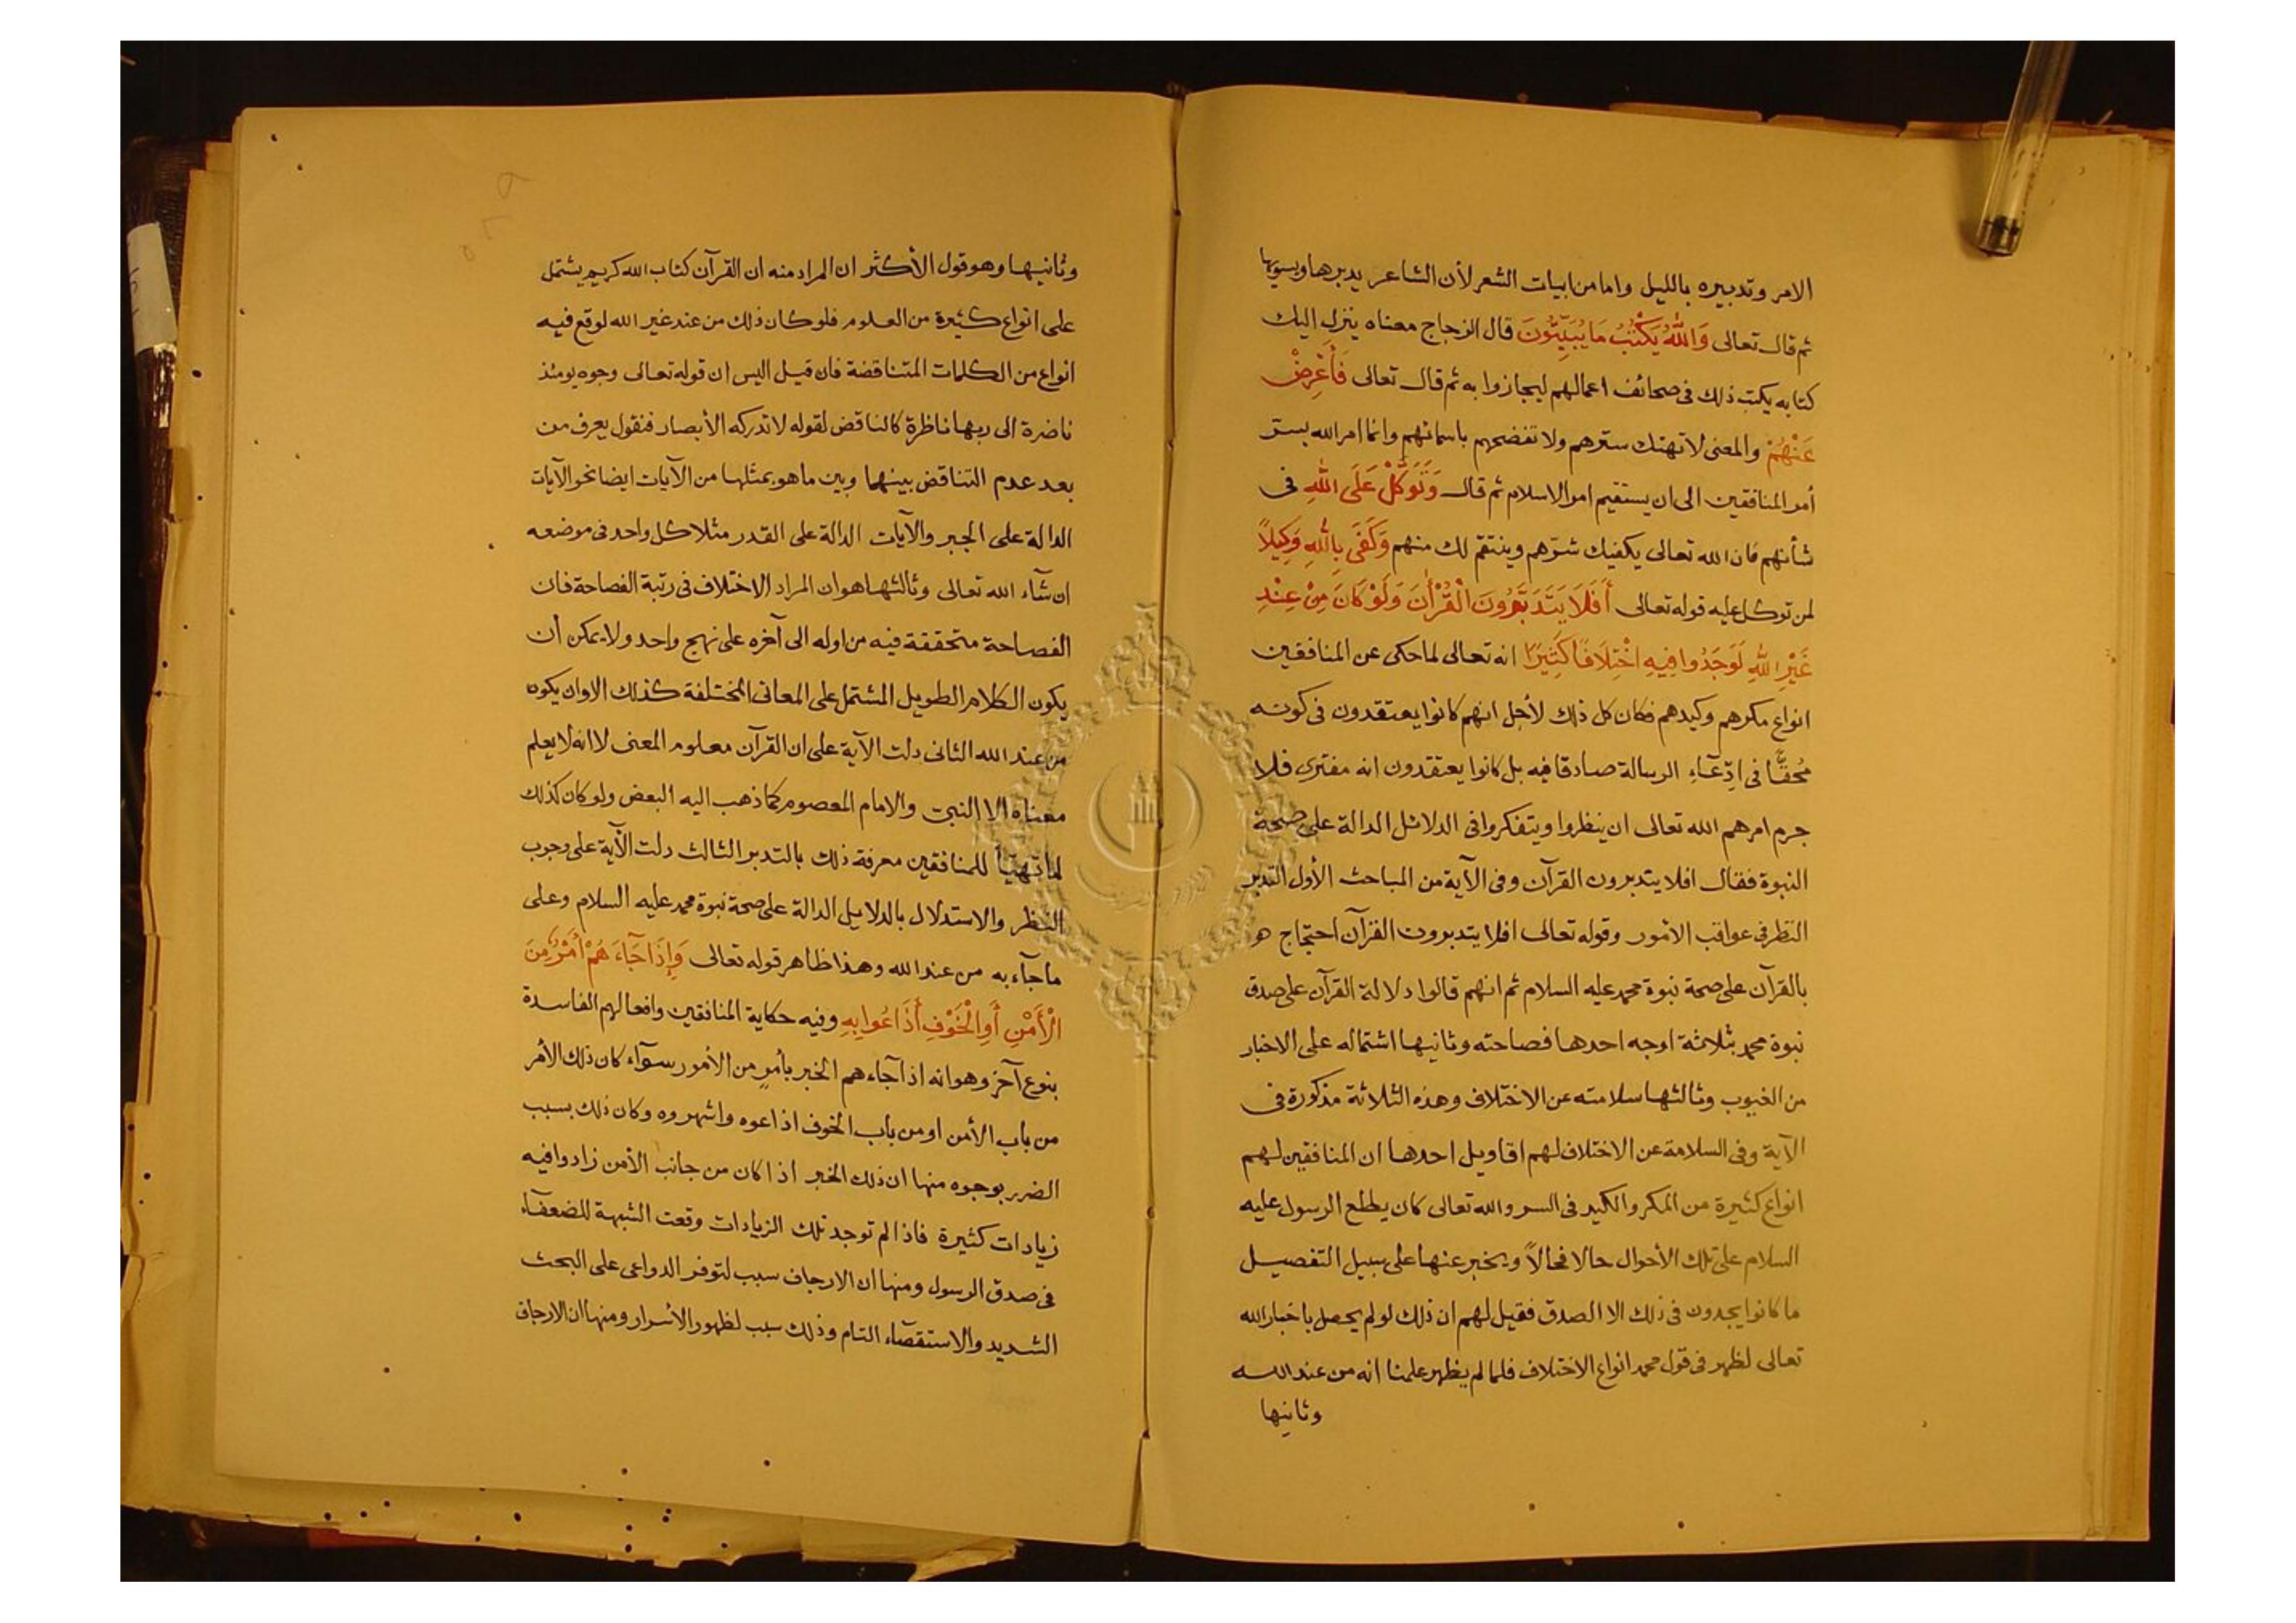 الامر وتدبيره بالليل واما من ابيات الشعر لأن الشاعر يدبرها ويسويها
ثم قال تعالى وَاللّٰهُ يَكْتُبُ مَا يُبَيِّتُونَ قال الزجاج معناه ينزل اليك
كتابه يكتب ذلك فى صحائف اعمالهم ليجازوا به ثم قال تعالى فَأَعْرِضْ
عَنْهُمْ والمعنى لا تهتك سترهم ولا تفضحهم باسمائهم وانما امر الله بستر
أمر المنافقين الى ان يستقيم امر الاسلام ثم قال وَتَوَكَّلْ عَلَى اللّٰهِ فى
شأنهم فان الله تعالى يكفيك شرّهم وينتقم لك منهم وَكَفَى بِاللّٰهِ وَكِيلًا
لمن توكل عليه قوله تعالى أَفَلَا يَتَدَبَّرُونَ الْقُرْاٰنَ وَلَوْ كَانَ مِنْ عِنْدِ
غَيْرِ اللّٰهِ لَوَجَدُوا فِيهِ اخْتِلَافًا كَثِيرًا انه تعالى لما حكى عن المنافقين
انواع مكرهم وكيدهم فكان كل ذلك لأجل انهم كانوا يعتقدون فى كونه
مُحقًّا فى ادِّعَآءِ الرسالة صادقا فيه بل كانوا يعتقدون انه مفترى فلا
جرم امرهم الله تعالى ان ينظروا ويتفكروا فى الدلائل الدالة على صحة
النبوة فقال افلا يتدبرون القرآن وفى الآية من المباحث الأول التدبر
النظر فى عواقب الأمور وقوله تعالى افلا يتدبرون القرآن احتجاج هو
بالقرآن على صحة نبوة محمد عليه السلام ثم انهم قالوا دلالة القرآن على صدق
نبوة محمد بثلاثة اوجه احدها فصاحته وثانيها اشتماله على الاخبار
من الغيوب وثالثها سلامته عن الاختلاف وهذه الثلاثة مذكورة فى
الآية وفى السلامة عن الاختلاف لهم اقاويل احدها ان المنافقين لهم
انواع كثيرة من المكر والكيد فى السر والله تعالى كان يطلع الرسول عليه
السلام على تلك الأحوال حالا فحالاً ويخبر عنها على سبيل التفصيل
ما كانوا يجدون فى ذلك الا الصدق فقيل لهم ان ذلك لو لم يحصل باخبار الله
تعالى لظهر فى قول محمد انواع الاختلاف فلما لم يظهر علمنا انه من عند الله
وثانيها
وثانيها وهو قول الأكثر ان المراد منه ان القرآن كتاب الله كريم يشتمل
على انواع كثيرة من العلوم فلو كان ذلك من عند غير الله لوقع فيه
انواع من الكلمات المتناقضة فان قيل اليس ان قوله تعالى وجوه يومئذ
ناضرة الى ربها ناظرة كالناقض لقوله لا تدركه الأبصار فنقول يعرف من
بعد عدم التناقض بينهما وبين ما هو بمثلها من الآيات ايضا نحو الآيات
الدالة على الجبر والآيات الدالة على القدر مثلا كل واحد فى موضعه
ان شآء الله تعالى وثالثها هو ان المراد الاختلاف فى رتبة الفصاحة فان
الفصاحة متحققة فيه من اوله الى آخره على نهج واحد ولا يمكن أن
يكون الكلام الطويل المشتمل على المعانى المختلفة كذلك الا وان يكون
من عند الله الثانى دلت الآية على ان القرآن معلوم المعنى لا انه لا يعلم
معناه الا النبى والامام المعصوم كما ذهب اليه البعض ولو كان كذلك
لما تهيّأ للمنافقين معرفة ذلك بالتدبر الثالث دلت الآية على وجوب
النظر والاستدلال بالدلايل الدالة على صحة نبوة محمد عليه السلام وعلى
ما جآء به من عند الله وهذا ظاهر قوله تعالى وَإِذَا جَآءَهُمْ أَمْرٌ مِنَ
الْأَمْنِ أَوِ الْخَوْفِ أَذَاعُوا بِهِ وفيه حكاية المنافقين وافعالهم الفاسدة
بنوع آخر وهو انه اذا جآءهم الخبر بأمرٍ من الأمور سوآء كان ذلك الأمر
من باب الأمن او من باب الخوف اذاعوه واشهروه وكان ذلك بسبب
الضرر بوجوه منها ان ذلك الخبر اذا كان من جانب الأمن زادوا فيه
زيادات كثيرة فاذا لم توجد تلك الزيادات وقعت الشبهة للضعفآء
فى صدق الرسول ومنها ان الارجاف سبب لتوفر الدواعى على البحث
الشديد والاستقصآء التام وذلك سبب لظهور الأسرار ومنها ان الارجاف